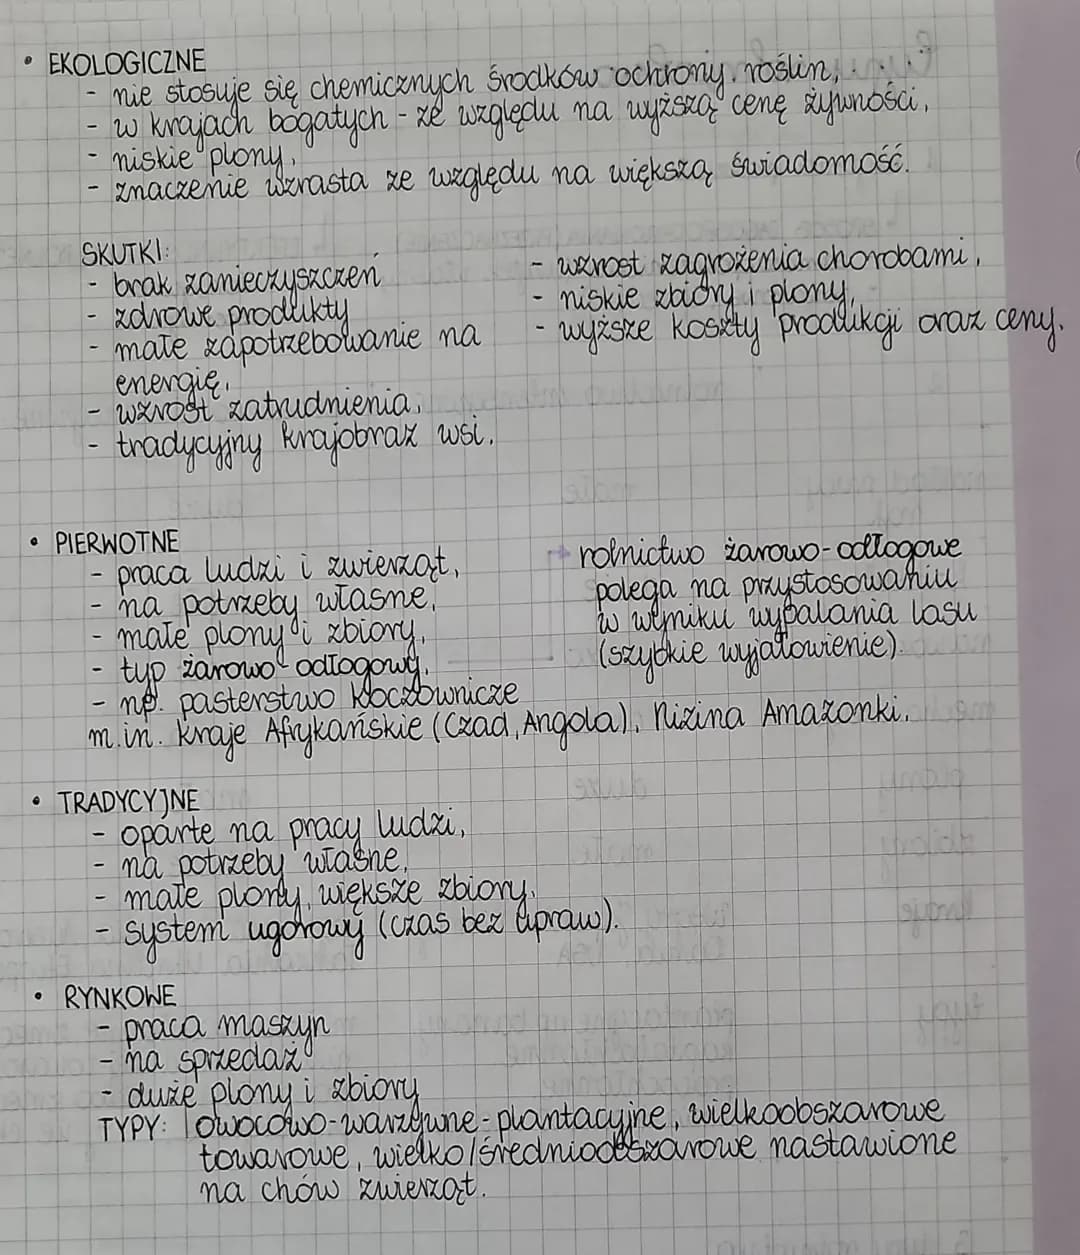 • EKOLOGICZNE
- nie stosuje się chemicznych środków ochrony roślin,
- w krajach bogatych - ze względu na wyższą cenę żywności,
- niskie plony,
- znaczenie wzrasta ze względu na większą świadomość.
SKUTKI:
- brak zanieczyszczeń
- zdrowe produkty
- małe zapotrzebowanie na
energię,
- wzrost zatrudnienia,
- tradycyjny krajobraz wsi.
- wzrost zagrożenia chorobami,
- niskie zbiory i plony,
- wyższe koszty produkcji oraz ceny.
• PIERWOTNE
- praca ludzi i zwierząt,
- na potrzeby własne,
- małe plony i zbiory,
- typ żarowo-odłogowy,
- np. pasterstwo koczownicze
m.in. kraje Afrykańskie (Czad, Angola), Nizina Amazonki.
→ rolnictwo żarowo-odłogowe
polega na przystosowaniu
w wyniku wypalania lasu
(szybkie wyjałowienie).
• TRADYCYJNE
- oparte na pracy ludzi,
- na potrzeby własne,
- małe plony, większe zbiory,
- system ugorowy (czas bez upraw).
• RYNKOWE
- praca maszyn
- na sprzedaż
- duże plony i zbiory
TYPY: owocowo-warzywne-plantacyjne, wielkoobszarowe
towarowe, wielko/średnioobszarowe nastawione
na chów zwierząt.